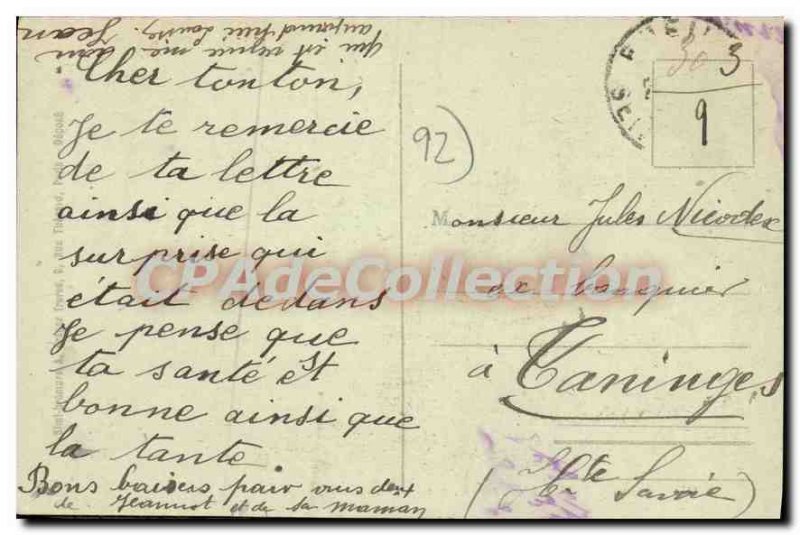 Cher tonton,
Je te remercie
de ta lettre
ainsi que la
surprise qui
était dedans
Je pense que
ta santé est
bonne ainsi que
la tante
Bons baisers pour vous deux
de Jeannot et de sa maman
qui est
aujourd'hui
Jean
92)
30 3
9
Monsieur Jules Nicodex
ex banquier
à Taninges
(Hte Savoie)
CPAdeCollection.com